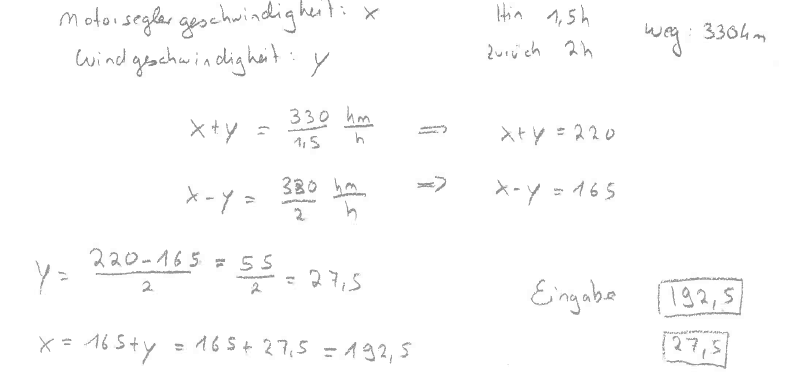 Motorseglergeschwindigkeit: x
Hin 1,5h
Weg: 330km
Windgeschwindigkeit: y
zurück 2h
x+y = 330/1,5 km/h => x+y = 220
x-y = 330/2 km/h => x-y = 165
y = (220-165)/2 = 55/2 = 27,5
Eingabe 192,5
x = 165+y = 165+27,5 = 192,5
27,5